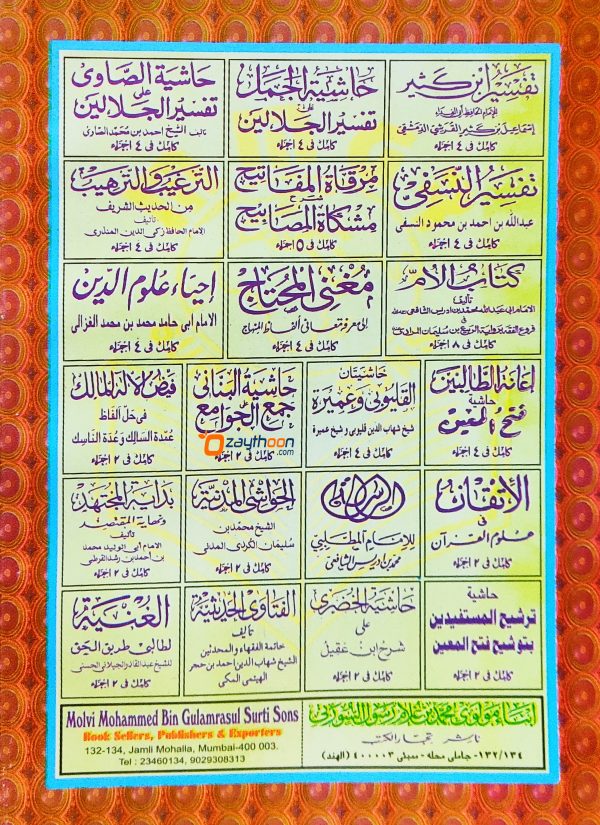 تفسير ابن كثير
للإمام الحافظ أبي الفداء
إسماعيل بن كثير القرشي الدمشقي
كامل في ٤ اجزاء
حاشية الجمل
على
تفسير الجلالين
كامل في ٤ اجزاء
حاشية الصاوى
على
تفسير الجلالين
تأليف الشيخ احمد بن محمد الصاوى
كامل في ٤ اجزاء
تفسير النسفى
عبدالله بن احمد بن محمود النسفى
كامل في ٤ اجزاء
مرقاة المفاتيح
شرح
مشكاة المصابيح
كامل في ٥ اجزاء
الترغيب والترهيب
من الحديث الشريف
تأليف
الامام الحافظ زكى الدين المنذرى
كامل في ٤ اجزاء
كتاب الأم
تأليف
الامام ابي عبدالله محمد بن ادريس الشافعي
فروع الفقه برواية الربيع بن سليمان المرادى
كامل في ٨ اجزاء
مغنى المحتاج
الى معرفة معانى ألفاظ المنهاج
كامل في ٤ اجزاء
إحياء علوم الدين
الامام أبى حامد محمد بن محمد الغزالى
كامل في ٤ اجزاء
إعانة الطالبين
حاشية
فتح المعين
كامل في ٤ اجزاء
حاشيتان
القليوبى وعميرة
شيخ شهاب الدين قليوبى و شيخ عميرة
كامل في ٤ اجزاء
حاشية البنانى
على
جمع الجوامع
كامل في ٢ اجزاء
فيض الإله المالك
فى حل ألفاظ
عمدة السالك وعدة الناسك
كامل في ٢ اجزاء
Ozaythoon
.com
الإتقان
فى
علوم القرآن
كامل في ٢ اجزاء
الرسالة
للإمام المطلبي
محمد بن ادريس الشافعي
الحواشى المدنية
الشيخ محمد بن
سليمان الكردى المدنى
كامل في ٢ اجزاء
بداية المجتهد
ونهاية المقتصد
تأليف
الامام أبى الوليد محمد
بن احمد بن رشد القرطبى
كامل في ٢ اجزاء
حاشية
ترشيح المستفيدين
بتوشيح فتح المعين
كامل في ٢ اجزاء
حاشية الخضرى
على
شرح ابن عقيل
كامل في ٢ اجزاء
الفتاوى الحديثية
تأليف
خاتمة الفقهاء والمحدثين
الشيخ شهاب الدين احمد بن حجر
الهيتمى المكى
الغنية
لطالبى طريق الحق
للشيخ عبدالقادر الجيلانى الحسنى
كامل في ٢ اجزاء
ابناء مولوى محمد بن غلام رسول السورتى
ناشر تجار الكتب
١٣٢/١٣٤- جاملى محله - ممبئى ٤٠٠٠٠٣ (الهند)
Molvi Mohammed Bin Gulamrasul Surti Sons
Book Sellers, Publishers & Exporters
132-134, Jamli Mohalla, Mumbai-400 003.
Tel : 23460134, 9029308313